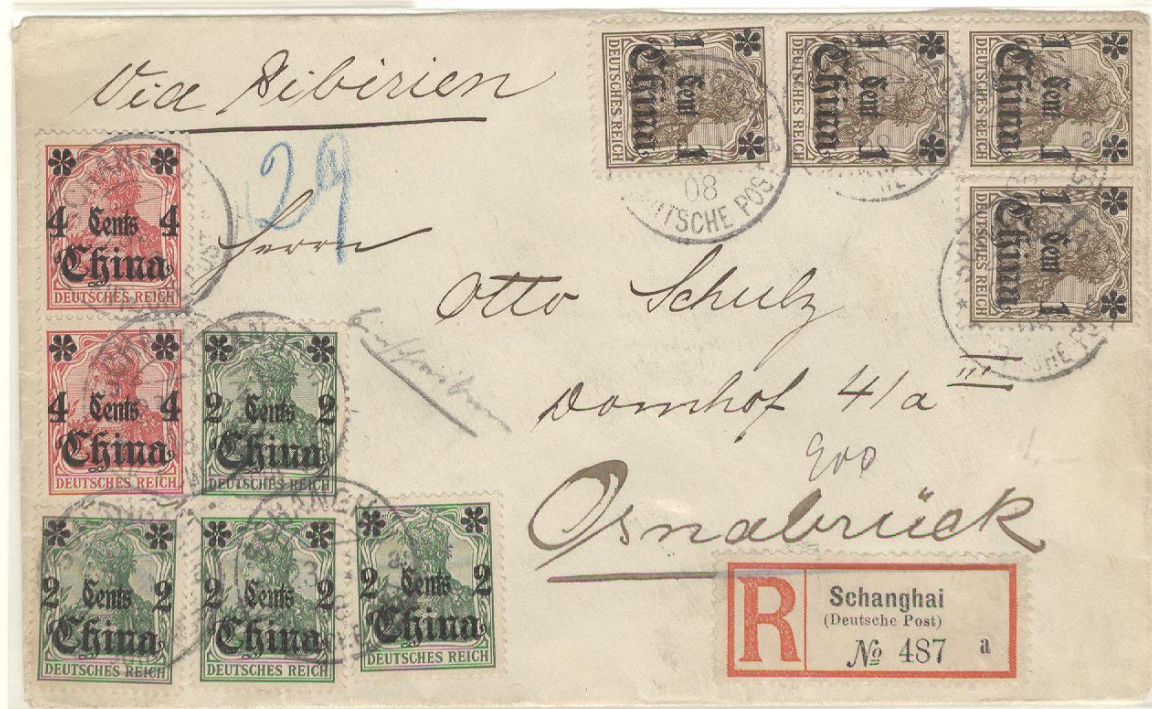 Via Sibirien
29
Herrn
Otto Schulz
Domhof 4/a III
Osnabrück
1 Cent 1
China
DEUTSCHES REICH
1 Cent 1
China
DEUTSCHES REICH
1 Cent 1
China
DEUTSCHES REICH
1 Cent 1
China
DEUTSCHES REICH
08
DEUTSCHE POST
4 Cents 4
China
DEUTSCHES REICH
4 Cents 4
China
DEUTSCHES REICH
2 Cents 2
China
DEUTSCHES REICH
2 Cents 2
China
DEUTSCHES REICH
2 Cents 2
China
DEUTSCHES REICH
2 Cents 2
China
DEUTSCHES REICH
R
Schanghai
(Deutsche Post)
№ 487 a